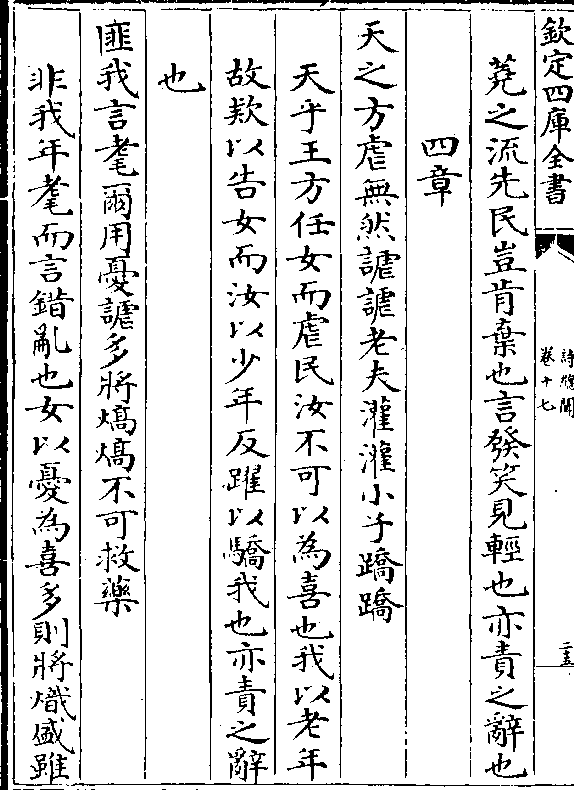 欽定四庫全書
詩𦅸聞
卷十七
二五
蕘之流先民豈肯棄也言發笑見輕也亦責之辭也
四章
天之方虐無然謔謔老夫灌灌小子蹻蹻
天乎王方任女而虐民汝不可以為喜也我以老年
故欵以告女而汝以少年反躍以驕我也亦責之辭
也
匪我言耄爾用憂謔多將熇熇不可救藥
非我年耄而言錯亂也女以憂為喜多則將熾盛雖